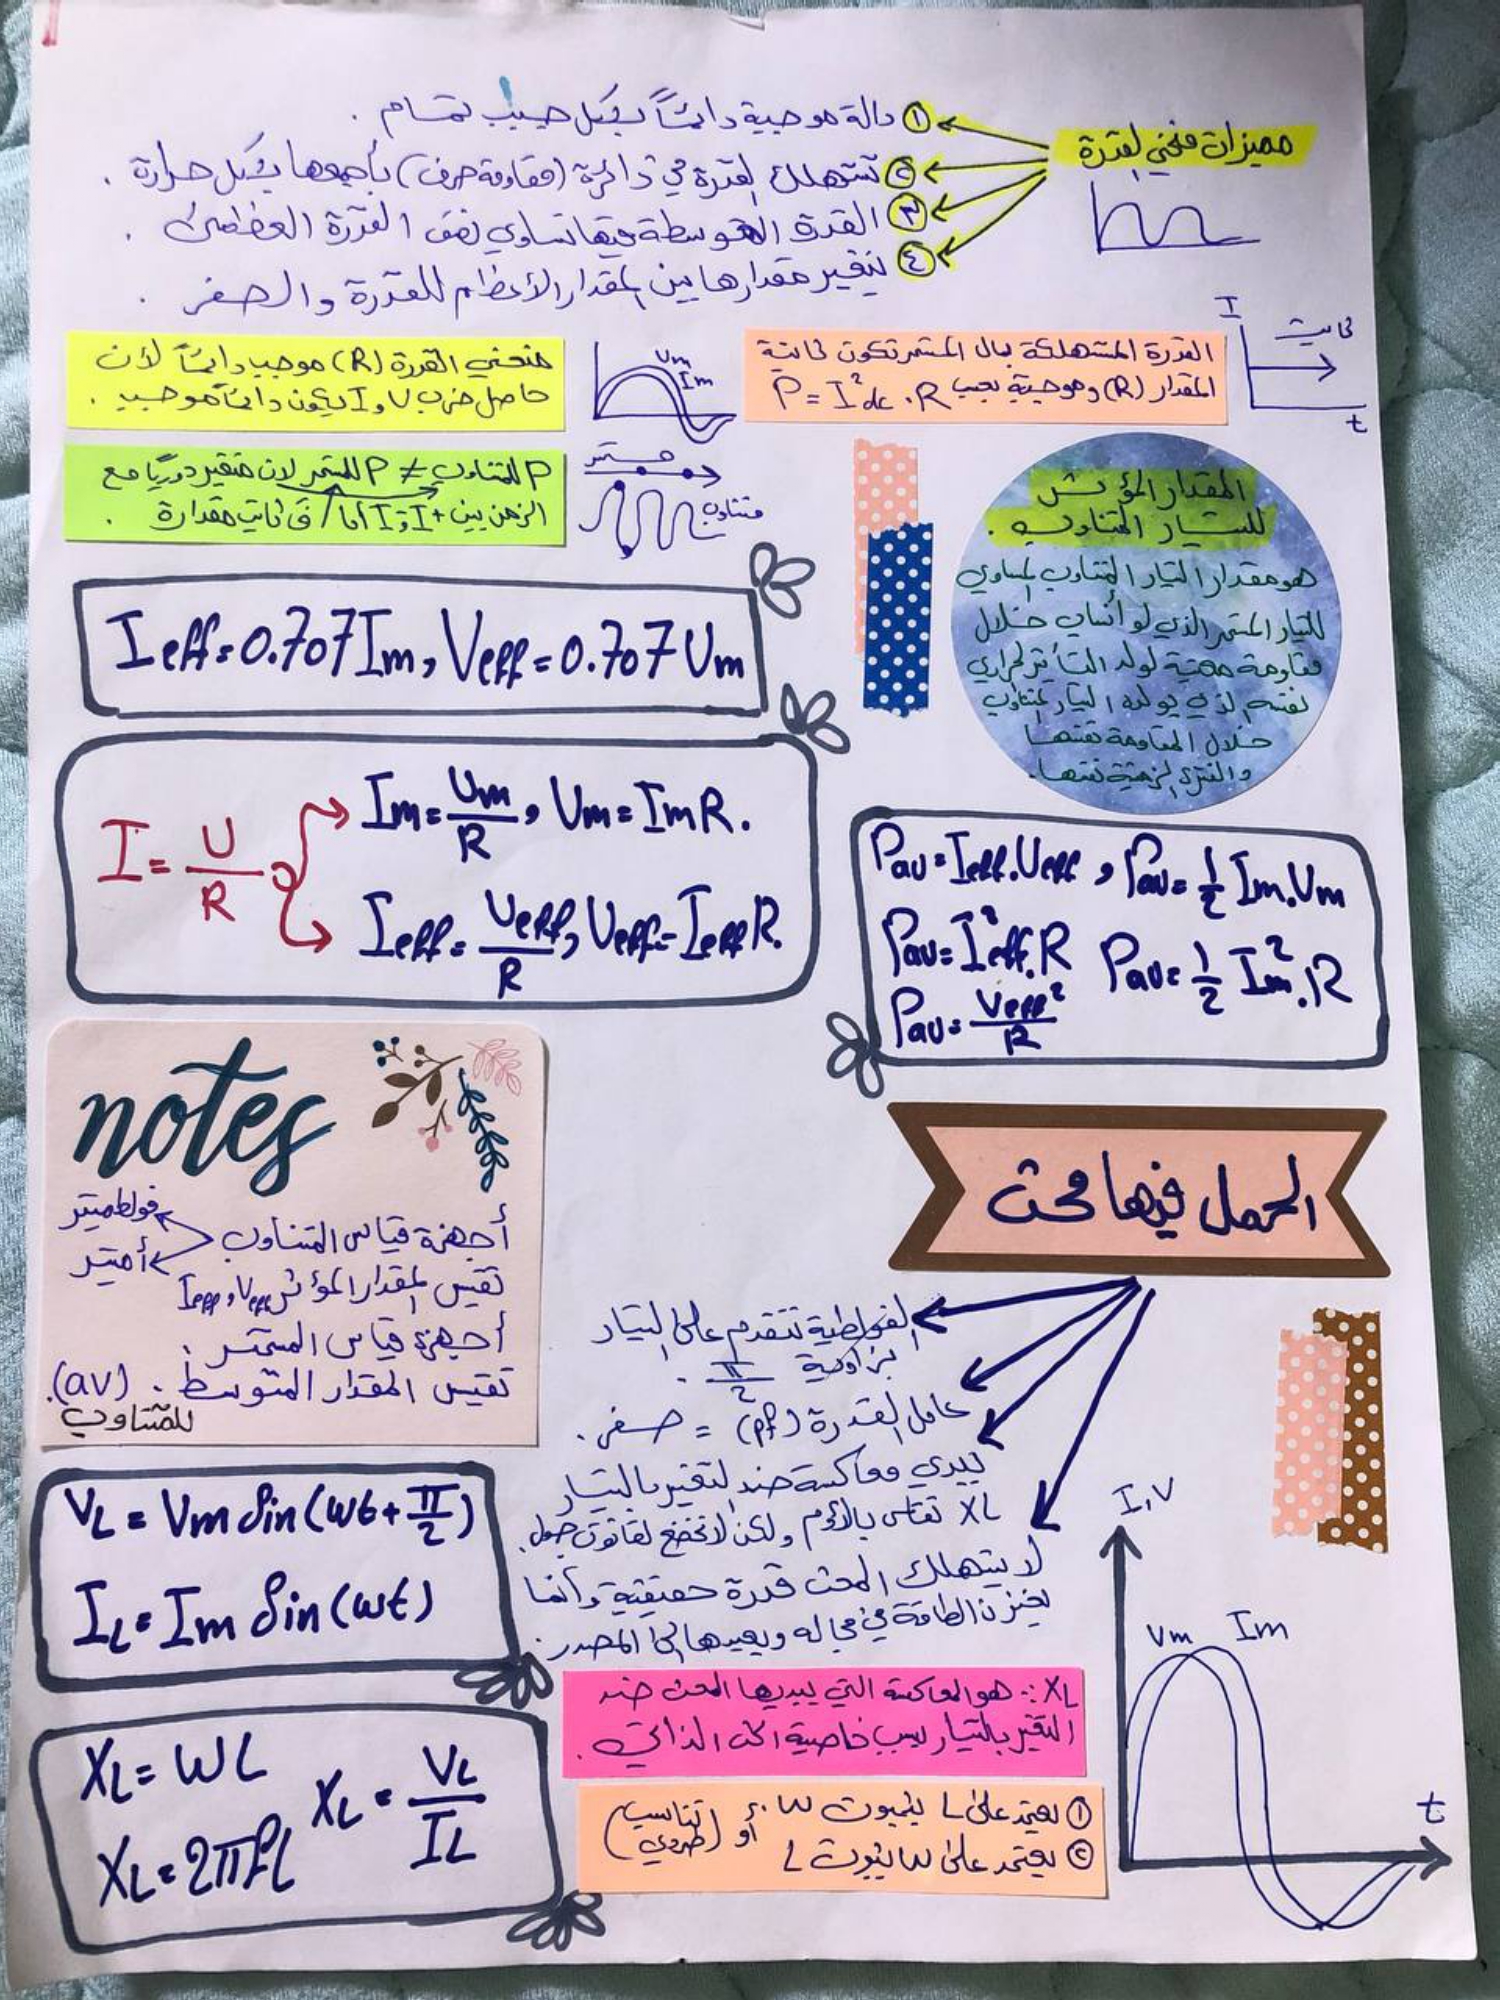 مميزات منحني القدرة
١ دالة موجبة دائماً بشكل جيب تمام .
٢ تستهلك القدرة في دائرة (مقاومة صرف) بأجمعها بشكل حرارة .
٣ القدرة المتوسطة فيها تساوي نصف القدرة العظمى .
٤ تتغير مقدارها بين المقدار الأعظم للقدرة والصفر .
I
ثابت
t
القدرة المستهلكة بال المستمر تكون ثابتة
المقدار (R) وموجبة بحسب P = I²dc . R
Vm
Im
منحني القدرة (R) موجب دائماً لأن
حاصل ضرب I و V يكون دائماً موجب .
مستمر
متناوب
P المتناوب ≠ P المستمر لان متغير دورياً مع
الزمن بين +I و -I أما ثابت مقدارة .
المقدار المؤثر
للتيار المتناوب .
هو مقدار التيار المتناوب المساوي
للتيار المستمر الذي لو أنساب خلال
مقاومة معينة لولد التأثير الحراري
نفسه الذي يولده التيار المتناوب
خلال المقاومة نفسها
والفترة الزمنية نفسها.
Ieff = 0.707 Im , Veff = 0.707 Vm
I = U/R
Im = Um/R , Vm = Im R .
Ieff = Veff/R , Veff = Ieff R .
Pav = Ieff . Veff , Pav = 1/2 Im . Vm
Pav = I²eff . R Pav = 1/2 Im² . R
Pav = Veff²/R
notes
أجهزة قياس المتناوب
فولطميتر
أميتر
تقيس المقدار المؤثر Ieff , Veff
أجهزة قياس المستمر :
تقيس المقدار المتوسط . (av).
للمتناوب
الحمل فيها محث
الفولطية تتقدم على التيار
بزاوية π/2 .
عامل القدرة (pf) = صفر .
يبدي معاكسة ضد التغير بالتيار
XL تقاس بالأوم ولكن لا تخضع لقانون جول .
لا يستهلك المحث قدرة حقيقية وأنما
يختزن الطاقة في مجاله ويعيدها إلى المصدر .
VL = Vm Sin (wt + π/2)
IL = Im Sin (wt)
XL: هو المعاكسة التي يبديها المحث ضد
التغير بالتيار بسبب خاصية الحث الذاتي .
XL = wL
XL = 2πfL
XL = VL/IL
١ يعتمد على L بثبوت w . أو (تناسب طردي)
٢ يعتمد على w بثبوت L
I,V
Vm
Im
t